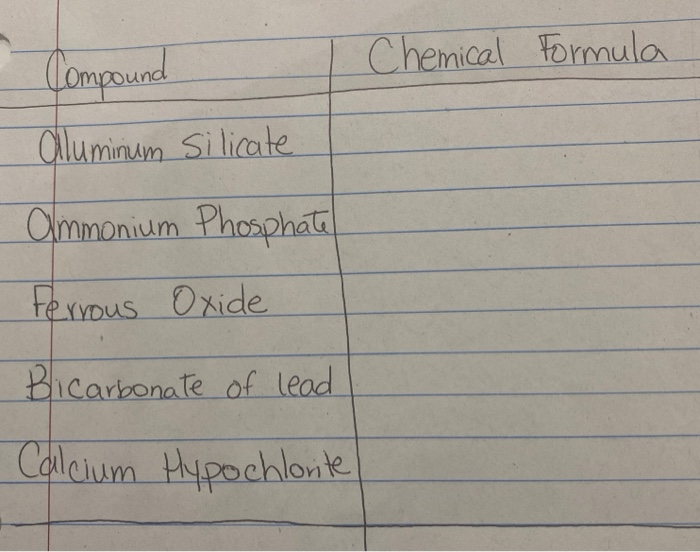 Compound Chemical Formula
Aluminum Silicate
Ammonium Phosphate
Ferrous Oxide
Bicarbonate of lead
Calcium Hypochlorite